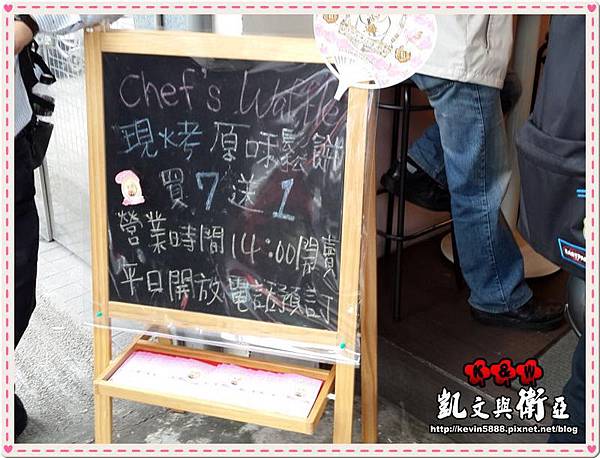 Chef's Waffle
現烤原味鬆餅
買7送1
營業時間14:00開賣
平日開放電話預訂
K&W
凱文與衛亞
http://kevin5888.pixnet.net/blog